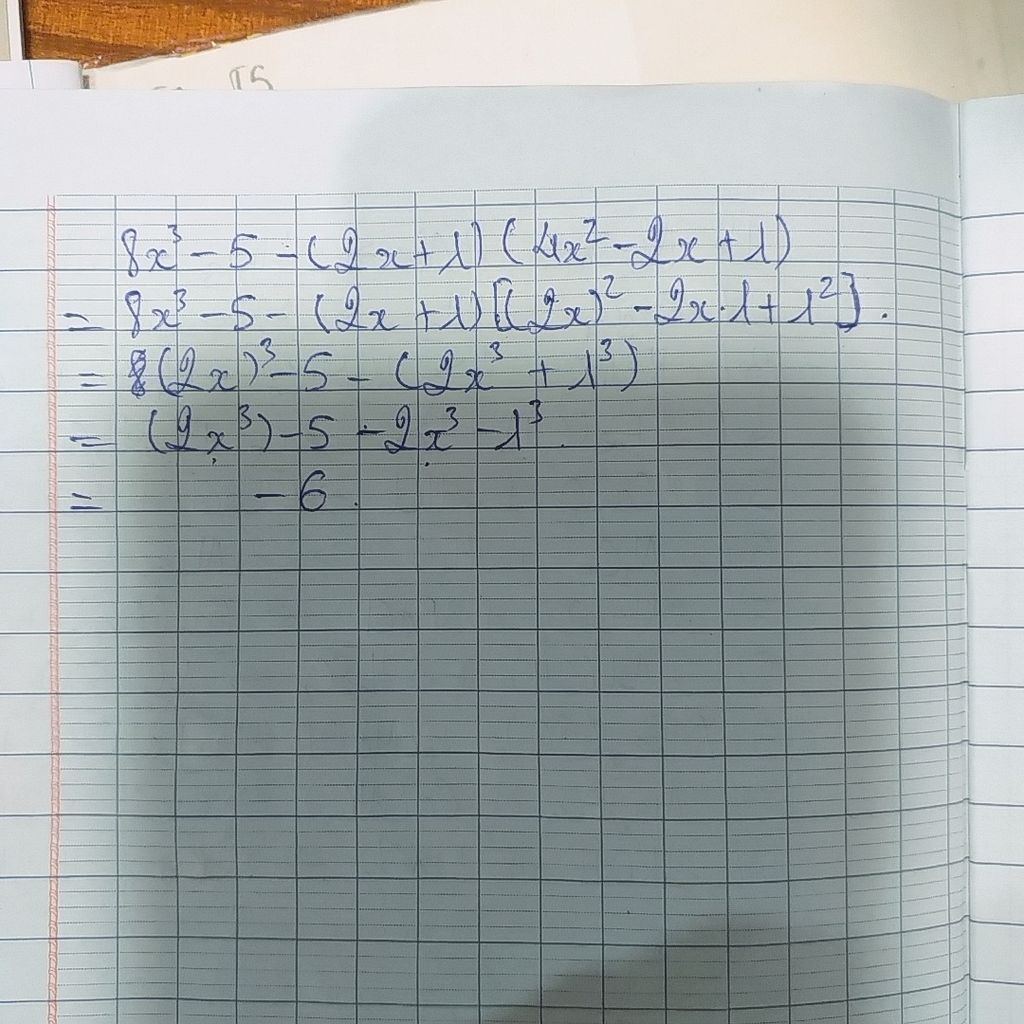 8x³ - 5 - (2x + 1) (4x² - 2x + 1)
= 8x³ - 5 - (2x + 1) [(2x)² - 2x.1 + 1²].
= (2x)³ - 5 - (2x³ + 1³)
= (2x³) - 5 - 2x³ - 1³
= - 6.